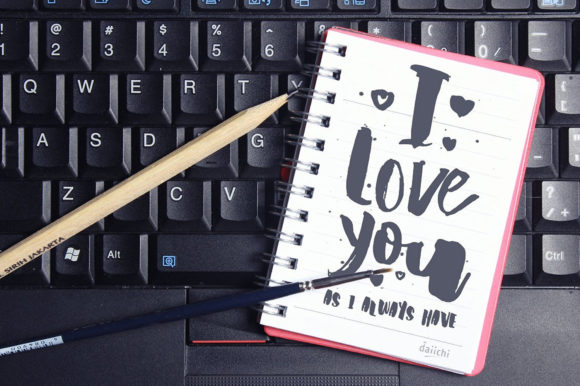 1 @ 2 # 3 $ 4 % 5 ^ 6
Q W E R T
A S D G
Z C V
Alt
Ctrl
SIRIH JAKARTA
I
Love
you
AS I ALWAYS HAVE
daiichi